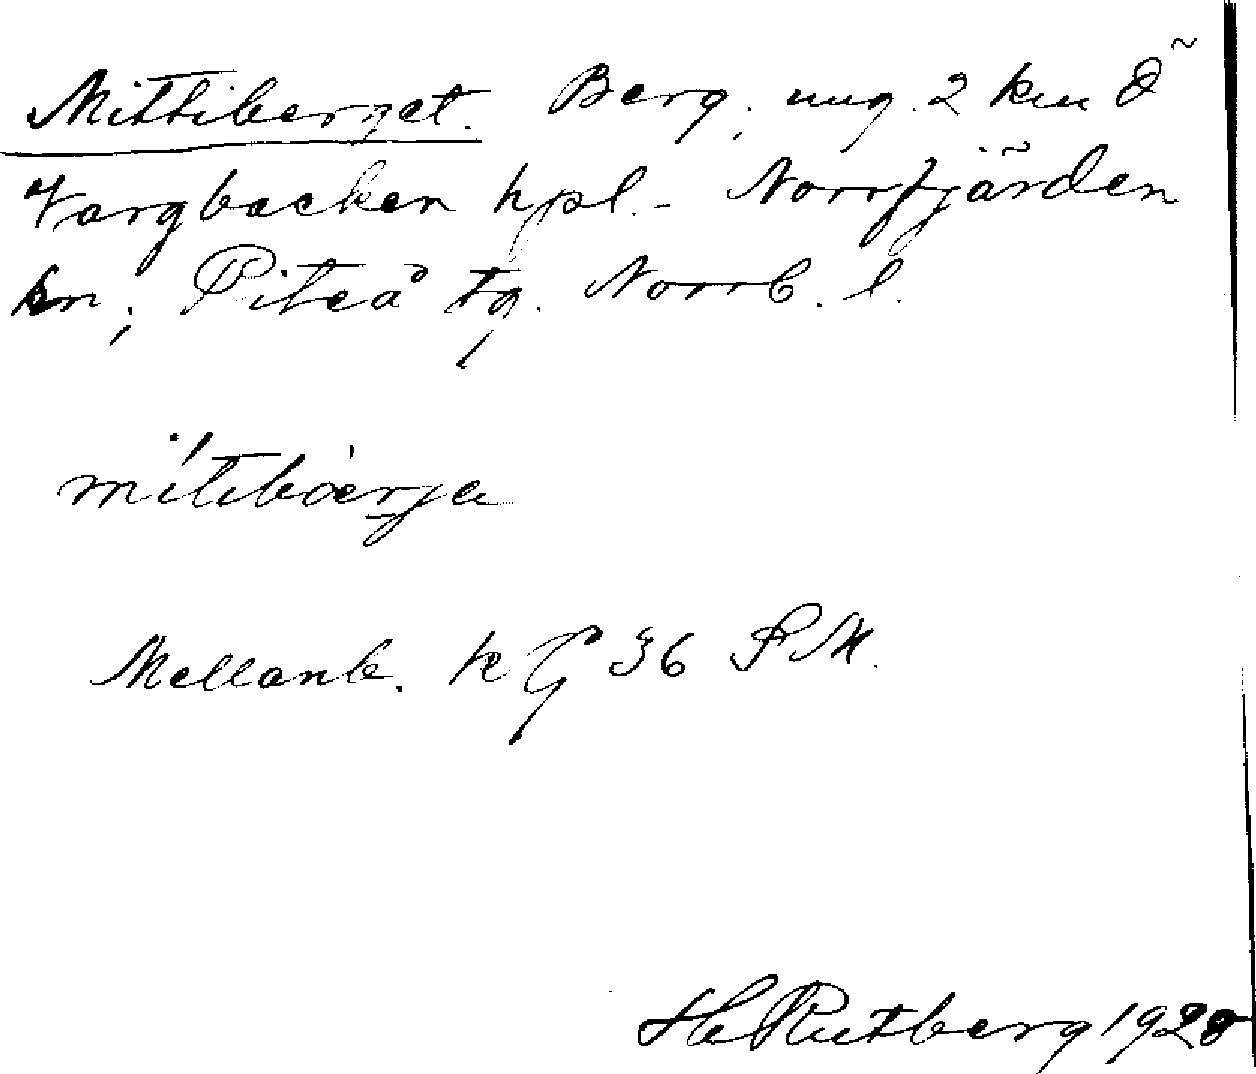 Mittiberget. Berg, ung. 2 km Ö
Vargbacken hpl. - Norrfjärden
sn, Piteå tg. Norrb. l.
mítibàerja
Mellanb. k G 36 P M.
H Rutberg 1928